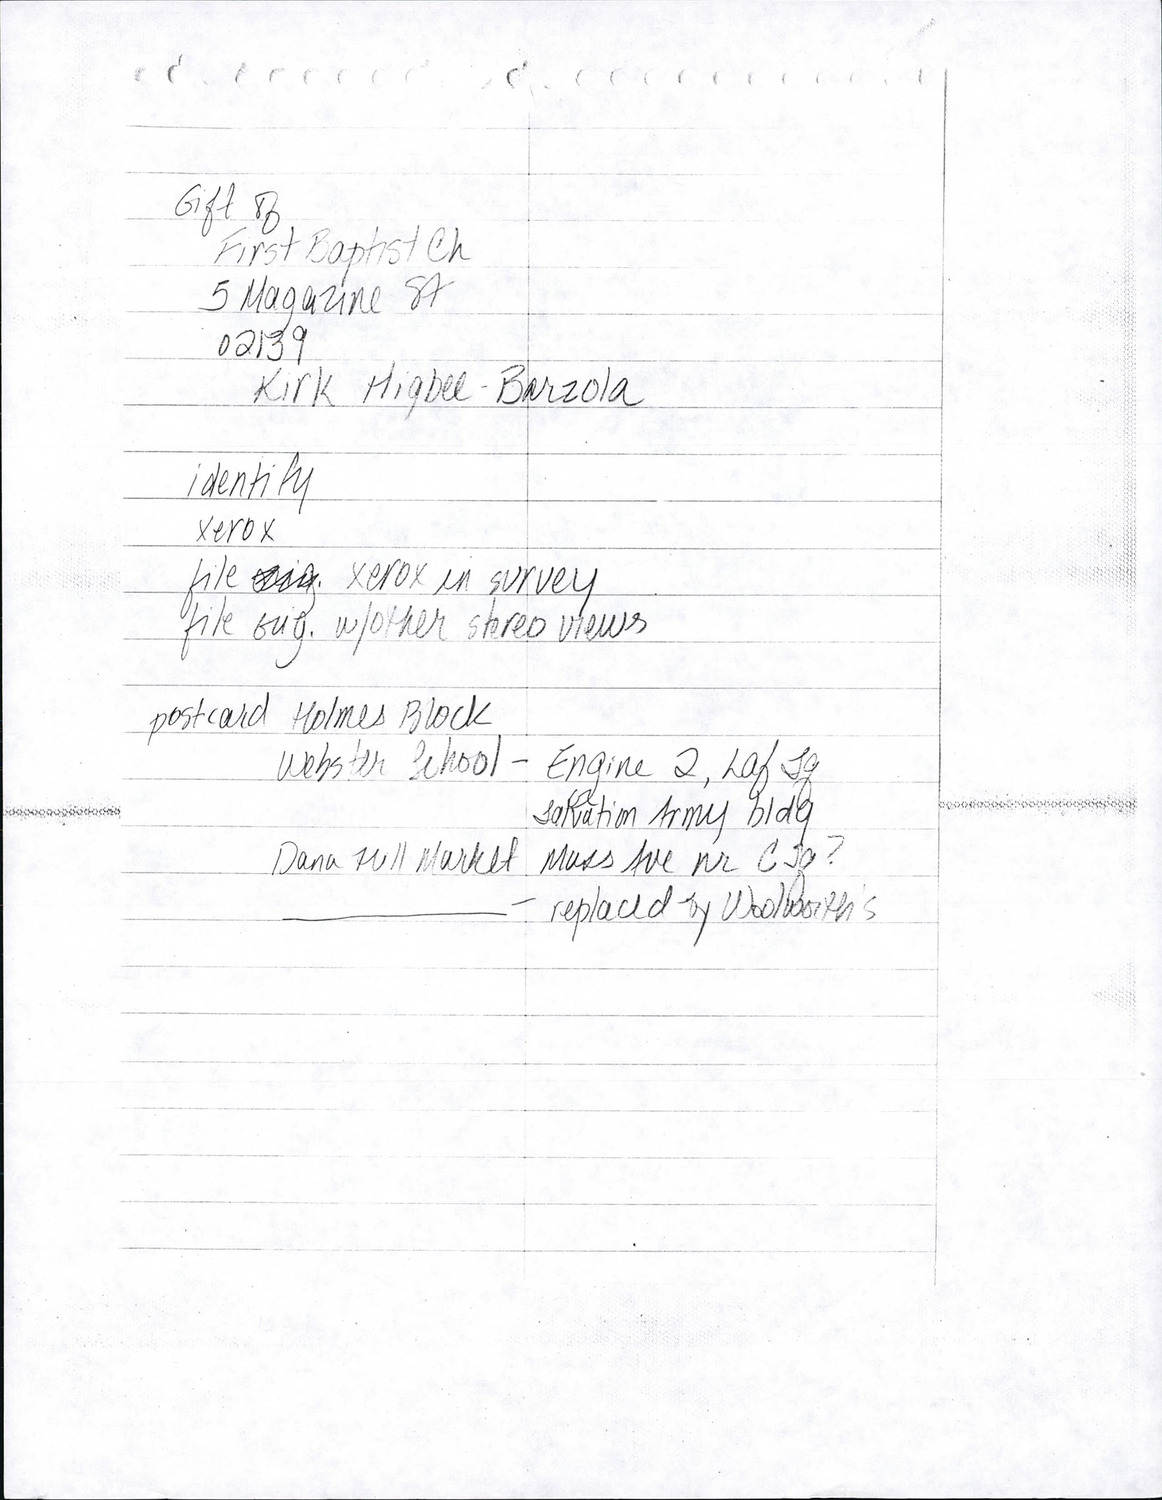 Gift of
First Baptist Ch
5 Magazine St
02139
Kirk Higbee-Barzola
identify
xerox
file orig. xerox in survey
file orig. w/other stereo views
postcard Holmes Block
Webster School - Engine 2, Laf Sq
Salvation Army bldg
Dana Hill Market Mass Ave nr C Sq?
- replaced by Woolworth's